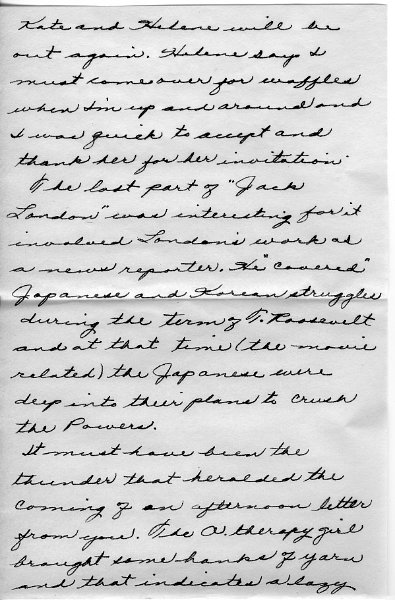 Kate and Helene will be
out again. Helene says I
must come over for waffles
when I'm up and around and
I was quick to accept and
thank her for her invitation.
The last part of "Jack
London" was interesting for it
involved London's work as
a news reporter. He "covered"
Japanese and Korean struggles
during the term of T. Roosevelt
and at that time (the movie
related) the Japanese were
deep into their plans to crush
the Powers.
It must have been the
thunder that heralded the
coming of an afternoon letter
from you. The O. therapy girl
brought some hanks of yarn
and that indicates a lazy